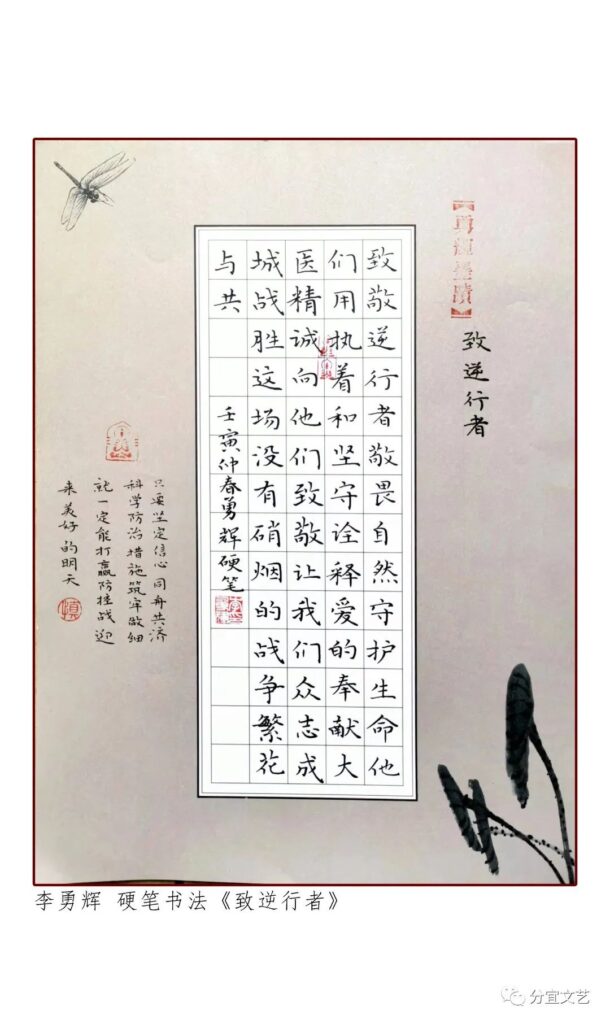 致逆行者
致敬逆行者敬畏自然守护生命他
们用执着和坚守诠释爱的奉献大
医精诚向他们致敬让我们众志成
城战胜这场没有硝烟的战争繁花
与共 壬寅仲春勇辉硬笔
只要坚定信心同舟共济
科学防治措施筑牢做细
就一定能打赢防控战迎
来美好的明天
李勇辉 硬笔书法《致逆行者》
分宜文艺